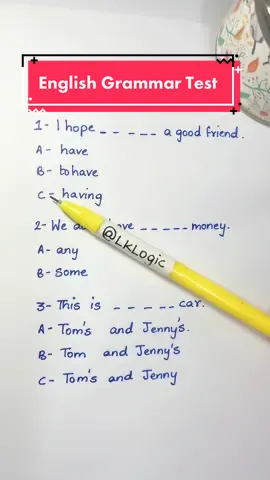 English Grammar Test
1- I hope _ _ _ _ _ a good friend.
A- have
B- to have
C- having
2- We _ _ _ _ _ money.
A- any
B- Some
3- This is _ _ _ _ _ car.
A- Tom's and Jenny's.
B- Tom and Jenny's
C- Tom's and Jenny
@LkLogic